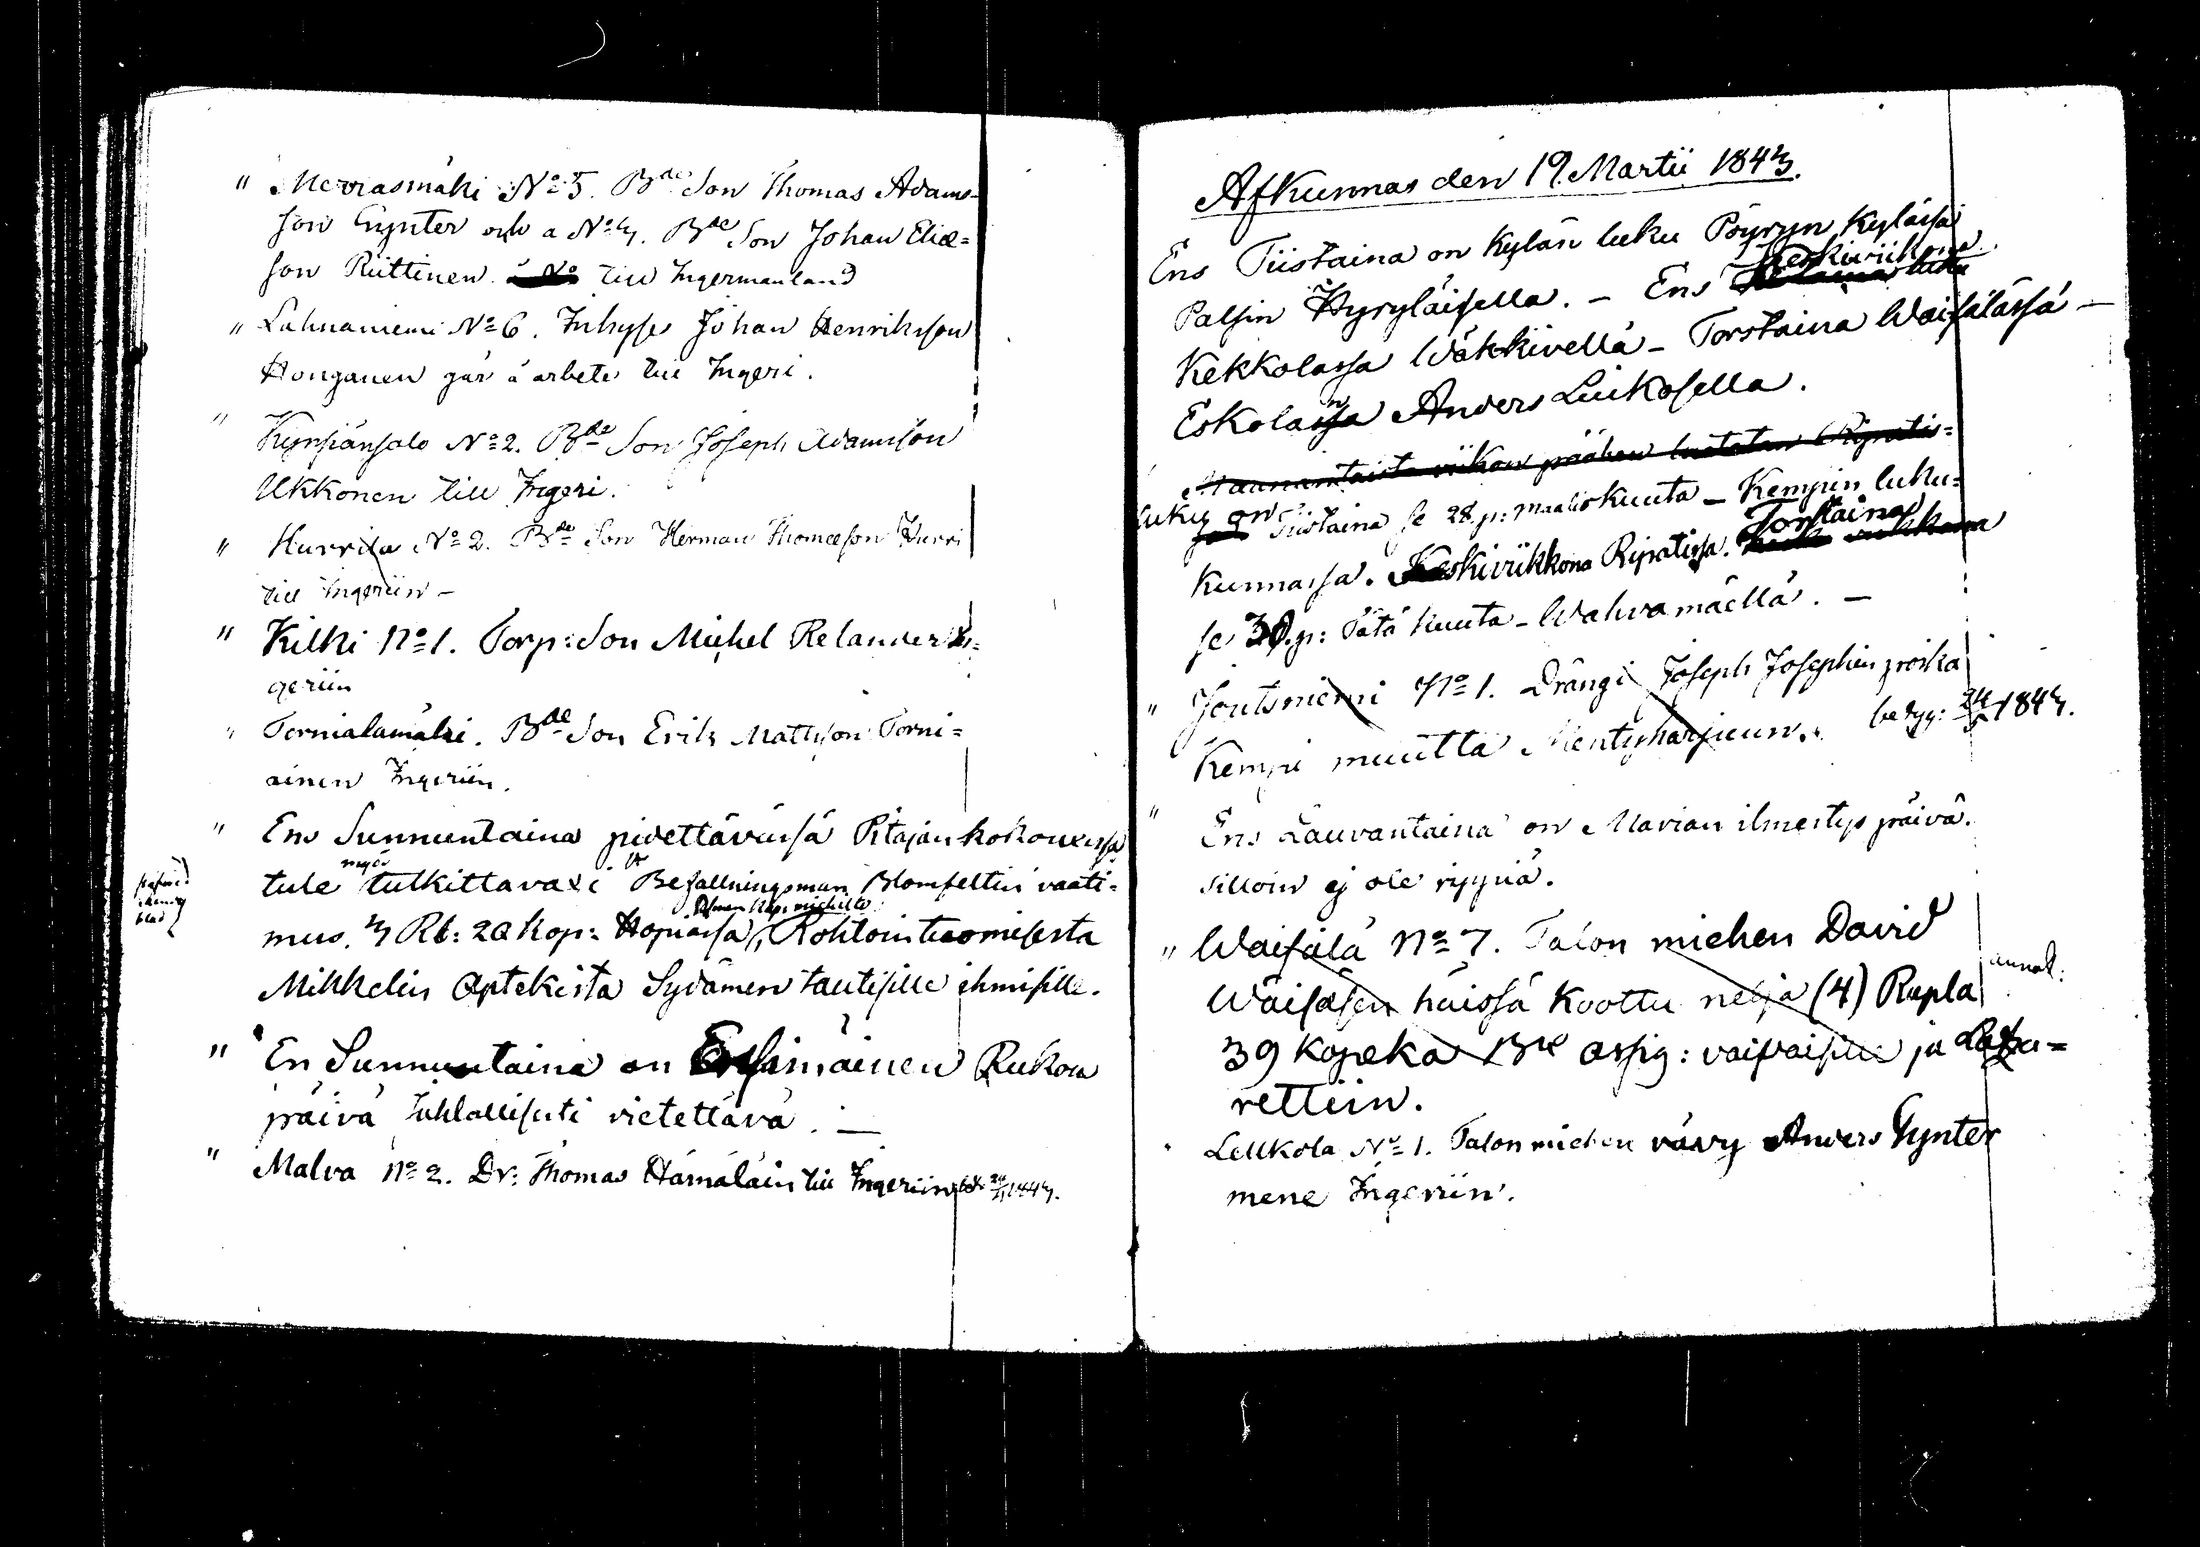 " Merrasmäki No 5. Bde Son Thomas Adams-
son Gynter och a No 3. Bde Son Johan Elia=
son Riittinen. till Ingermanland
" Lahnaniemi No 6. Inhyses Johan Henriksson
Honganen går å arbete till Ingeri.
" Kynsiänsalo No 2. Bde Son Joseph Adamsson
Ukkonen till Ingeri.
" Hurrila No 2. Bde Son Herman Thomasson Hurri
till Ingeriin –
" Kilki No 1. Torp: Son Michel Relander In-
geriin
" Tornialamäki. Bde Son Erik Mattsson Torni=
ainen Ingeriin.
" Ens Sunnuntaina pidettävässä Pitäjän kokouxessa
tule myös tutkittavaxi Befallningsman Blomfeltin vaati=
mus. 3 Rb: 20 Kop: Hopiassa, Rohtoin tuomisesta
Mikkelin Aptekista Sydämen tautisille ihmisille.
" En Sunnuntaina on Ensimäinen Rukous
päivä Juhlallisesti vietettävä. –
" Malva No 2. Dr: Thomas Hämäläin till Ingeriin 1843.
Afkunnas den 19. Martii 1843.
Ens Tiistaina on Kylän luku Pöyryn Kylässä
Palsin Hyryläisellä. – Ens Keskiviikkona
Kekkolassa Wäkkivellä – Torstaina Waisälässä –
Eskolassa Anders Luikosella.
Maanantaista viikon päähän luetetan Ripatis=
luku on Tiistaina se 28. p: Maaliskuuta – Kempin luku=
kunnassa. Keskiviikkona Ripatissa. Torstaina
se 30. p: Tätä kuuta – Wahvamäellä. –
" Joutsniemi No 1. Drängi Joseph Josephin poika
Kempi muutta Mentyharjuun. betyg: 1843.
" Ens Lauvantaina on Marian ilmestys päivä.
silloin ej ole rippiä.
" Waisälä No 7. Talon miehen David
Wäisäsen häissä Koottu neljä (4) Rupla
39 kopeka Bco assig: vaivaisille ja Lasa=
rettiin.
Lellkola No 1. Talon miehen vävy Anders Gynter
mene Ingeriin.